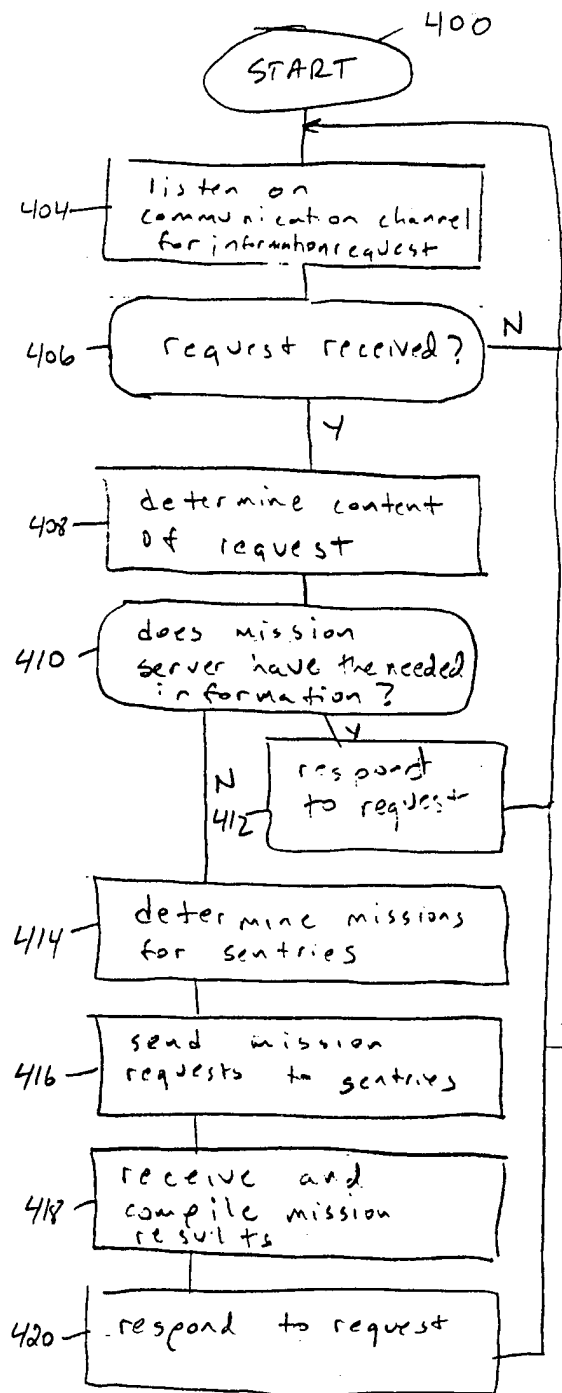 400
START
404
listen on
communication channel
for information request
406
request received?
N
Y
408
determine content
of request
410
does mission
server have the needed
information?
Y
N
412
respond
to request
414
determine missions
for sentries
416
send mission
requests to sentries
418
receive and
compile mission
results
420
respond to request